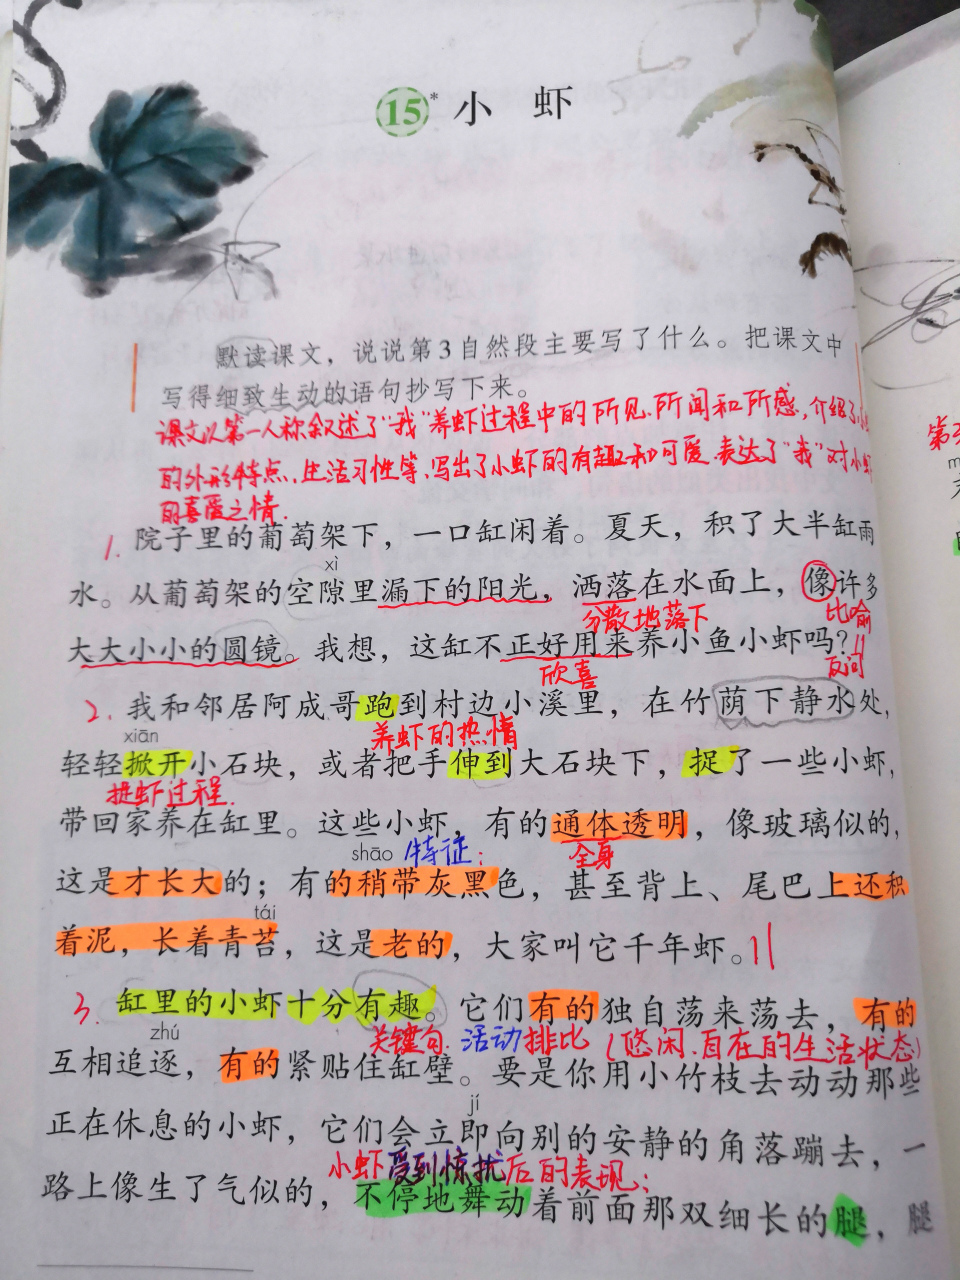 15* 小 虾
默读课文，说说第3自然段主要写了什么。把课文中
写得细致生动的语句抄写下来。
课文以第一人称叙述了"我"养虾过程中的所见、所闻和所感，介绍了小
的外形特点、生活习性等，写出了小虾的有趣和可爱，表达了"我"对小虾
的喜爱之情.
1. 院子里的葡萄架下，一口缸闲着。夏天，积了大半缸雨
xì
水。从葡萄架的空隙里漏下的阳光，洒落在水面上，像许多
分散地落下 比喻
大大小小的圆镜。我想，这缸不正好用来养小鱼小虾吗？
欣喜 反问
2. 我和邻居阿成哥跑到村边小溪里，在竹荫下静水处，
xiān 养虾的热情
轻轻掀开小石块，或者把手伸到大石块下，捉了一些小虾，
捉虾过程.
带回家养在缸里。这些小虾，有的通体透明，像玻璃似的，
shāo 特征： 全身
这是才长大的；有的稍带灰黑色，甚至背上、尾巴上还积
tái
着泥，长着青苔，这是老的，大家叫它千年虾。
3. 缸里的小虾十分有趣。它们有的独自荡来荡去，有的
zhú 关键句. 活动 排比 (悠闲、自在的生活状态)
互相追逐，有的紧贴住缸壁。要是你用小竹枝去动动那些
jí
正在休息的小虾，它们会立即向别的安静的角落蹦去，一
小虾受到惊扰后的表现：
路上像生了气似的，不停地舞动着前面那双细长的腿，腿